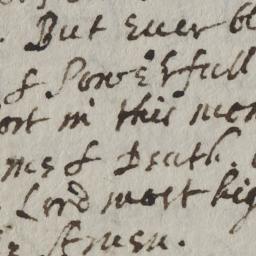 . But ever bl
& Powerfull
ort in this mom
me & Death.
Lord most hig
Amen.